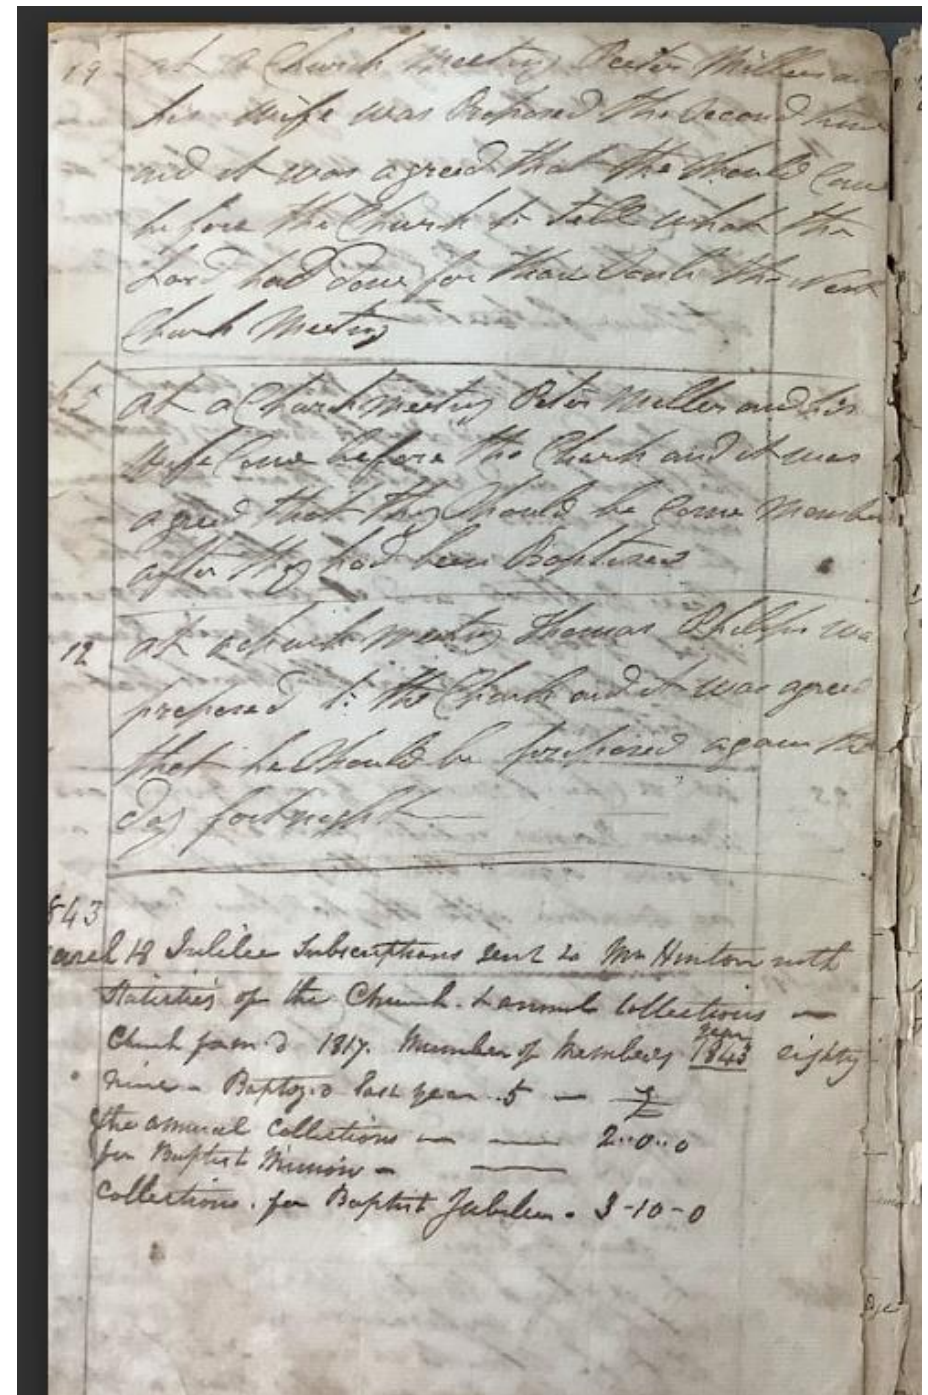 19 at a Church meeting Peeter Millers and
his wife was Proposed the Second time
and it was agreed that the Should Come
before the Church to tell what the
Lord had done for thair Souls the Next
Church Meeting
at a Church meeting Peter Miller and his
wife Come before the Church and it was
agreed that they Should be Come Member
after they had been Baptised
12 at a church meeting Thomas Philips wa
proposed to the Church and it was agreed
that he Should be proposed again this
Day fortnight
843
March 18 Jubilee Subscriptions sent to Mr Hinton with
Statistics of the Church & annual Collections
year
Church form'd 1817. Number of Members 1843 eighty
nine - Baptoz.d last year .. 5 — £
the annual Collections — — 2..0..0
for Baptist Mission - —
Collections. for Baptist Jubilee. 3-10-0